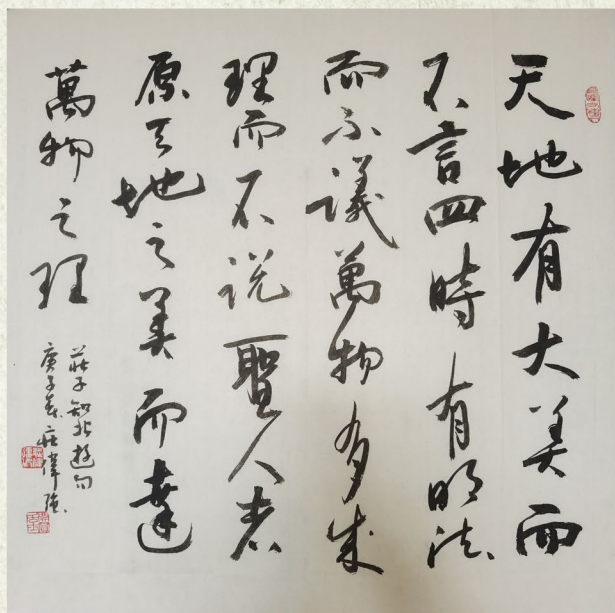 天地有大美而
不言四時有明法
而不議萬物有成
理而不说聖人者
原天地之美而達
萬物之理
莊子知北遊句
庚子春莊偉强